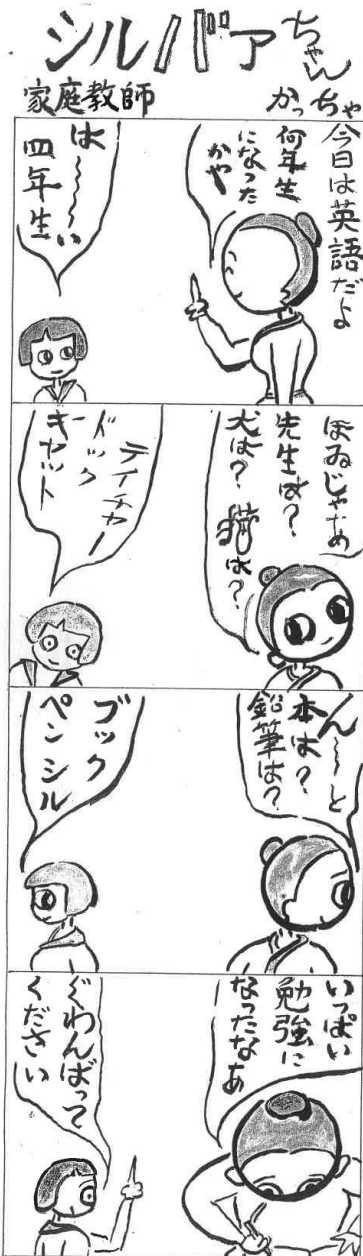 シルバアちゃん
家庭教師
かっちゃ
今日は英語だよ
何年生
になった
かや
は〜〜い
四年生
ほゐじゃため
先生は?
犬は?猫は?
テイチャー
ドック
キャット
ん〜と
本は?
鉛筆は?
ブック
ペンシル
いっぱい
勉強に
なったなあ
ぐわんばって
ください